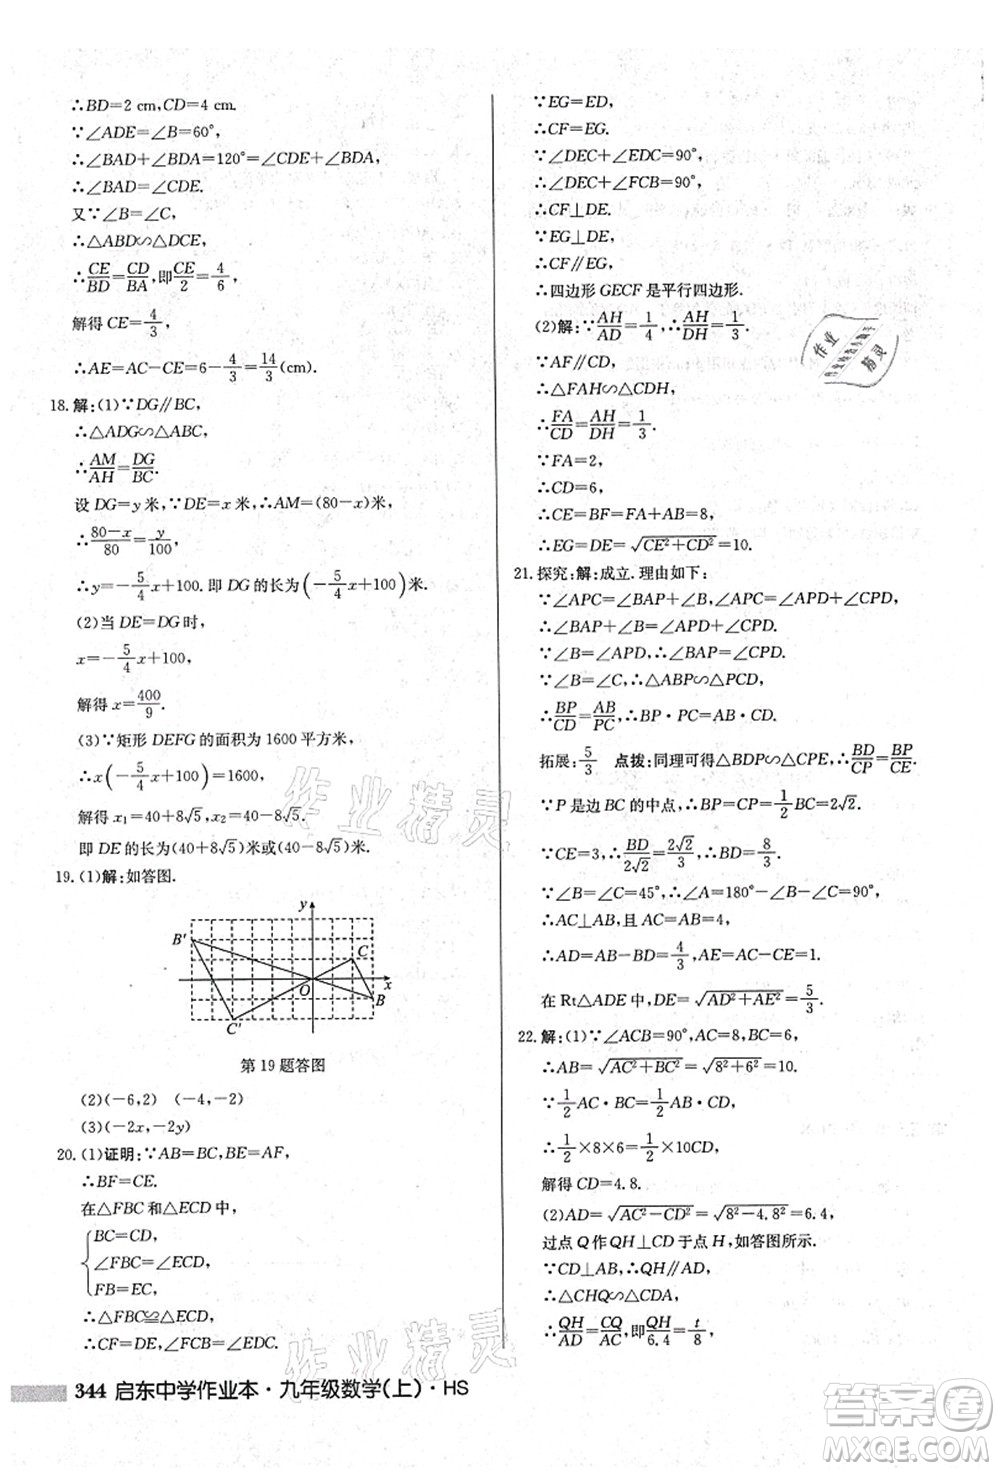 ∴BD=2 cm,CD=4 cm.
∵∠ADE=∠B=60°,
∴∠BAD+∠BDA=120°=∠CDE+∠BDA.
∴∠BAD=∠CDE.
又∵∠B=∠C,
∴△ABD∽△DCE.
∴CE/BD=CD/BA,即CE/2=4/6,
解得 CE=4/3,
∴AE=AC-CE=6-4/3=14/3(cm).
18.解:(1)∵DG∥BC,
∴△ADG∽△ABC,
∴AM/AH=DG/BC.
设 DG=y 米,∵DE=x 米,∴AM=(80-x)米,
∴(80-x)/80=y/100,
∴y=-5/4x+100.即 DG 的长为(-5/4x+100)米.
(2)当 DE=DG 时,
x=-5/4x+100,
解得 x=400/9.
(3)∵矩形 DEFG 的面积为 1600 平方米,
∴x(-5/4x+100)=1600,
解得 x₁=40+8√5,x₂=40-8√5.
即 DE 的长为(40+8√5)米或(40-8√5)米.
19.(1)解:如答图.
y
B′
C
O
x
B
C′
第 19 题答图
(2)(-6,2) (-4,-2)
(3)(-2x,-2y)
20.(1)证明:∵AB=BC,BE=AF,
∴BF=CE.
在△FBC 和△ECD 中,
BC=CD,
∠FBC=∠ECD,
FB=EC,
∴△FBC≌△ECD.
∴CF=DE,∠FCB=∠EDC.
∵EG=ED,
∴CF=EG.
∵∠DEC+∠EDC=90°,
∴∠DEC+∠FCB=90°,
∴CF⊥DE.
∵EG⊥DE,
∴CF∥EG,
∴四边形 GECF 是平行四边形.
(2)解:∵AH/AD=1/4,∴AH/DH=1/3.
∵AF∥CD,
∴△FAH∽△CDH,
∴FA/CD=AH/DH=1/3.
∵FA=2,
∴CD=6,
∴CE=BF=FA+AB=8,
∴EG=DE=√(CE²+CD²)=10.
21.探究:解:成立.理由如下:
∵∠APC=∠BAP+∠B,∠APC=∠APD+∠CPD,
∴∠BAP+∠B=∠APD+∠CPD.
∵∠B=∠APD,∴∠BAP=∠CPD.
∵∠B=∠C,∴△ABP∽△PCD,
∴BP/CD=AB/PC,∴BP·PC=AB·CD.
拓展:5/3 点拨:同理可得△BDP∽△CPE,∴BD/CP=BP/CE.
∵P 是边 BC 的中点,∴BP=CP=1/2BC=2√2.
∵CE=3,∴BD/2√2=2√2/3,∴BD=8/3.
∵∠B=∠C=45°,∴∠A=180°-∠B-∠C=90°,
∴AC⊥AB,且 AC=AB=4,
∴AD=AB-BD=4/3,AE=AC-CE=1.
在 Rt△ADE 中,DE=√(AD²+AE²)=5/3.
22.解:(1)∵∠ACB=90°,AC=8,BC=6,
∴AB=√(AC²+BC²)=√(8²+6²)=10.
∵1/2AC·BC=1/2AB·CD,
∴1/2×8×6=1/2×10CD,
解得 CD=4.8.
(2)AD=√(AC²-CD²)=√(8²-4.8²)=6.4,
过点 Q 作 QH⊥CD 于点 H,如答图所示.
∵CD⊥AB,∴QH∥AD,
∴△CHQ∽△CDA,
∴QH/AD=CQ/AC,∴QH/6.4=t/8,
344 启东中学作业本·九年级数学(上)·HS
作业精灵
作业精灵
作业
精灵
答案圈
MXQE.COM